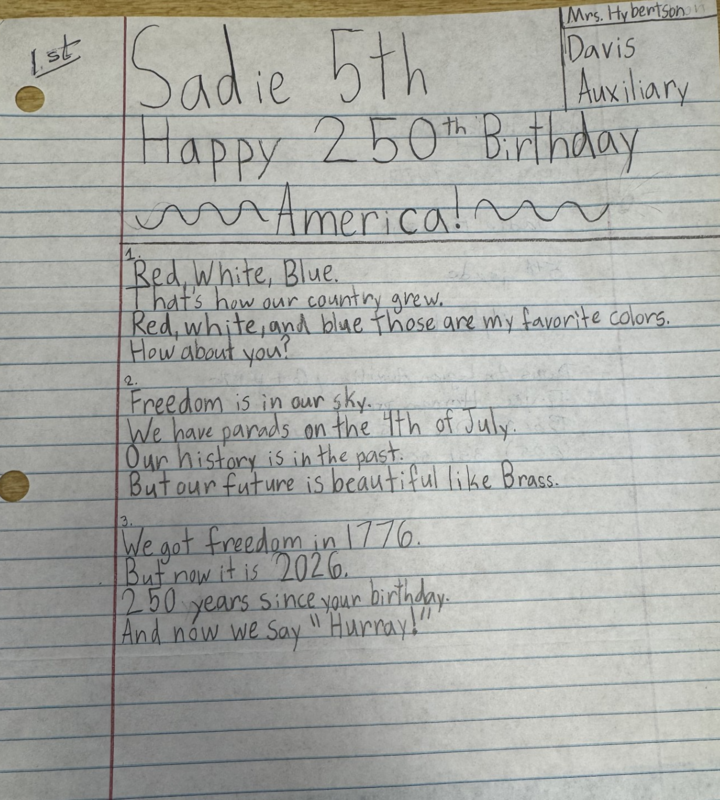 1.st
Sadie 5th
Mrs. Hybertson
Davis
Auxiliary
Happy 250th Birthday
America!
1.
Red, White, Blue.
That's how our country grew.
Red, white, and blue those are my favorite colors.
How about you?
2.
Freedom is in our sky.
We have parads on the 4th of July.
Our history is in the past.
But our future is beautiful like Brass.
3.
We got freedom in 1776.
But now it is 2026.
250 years since your birthday.
And now we say "Hurray!"